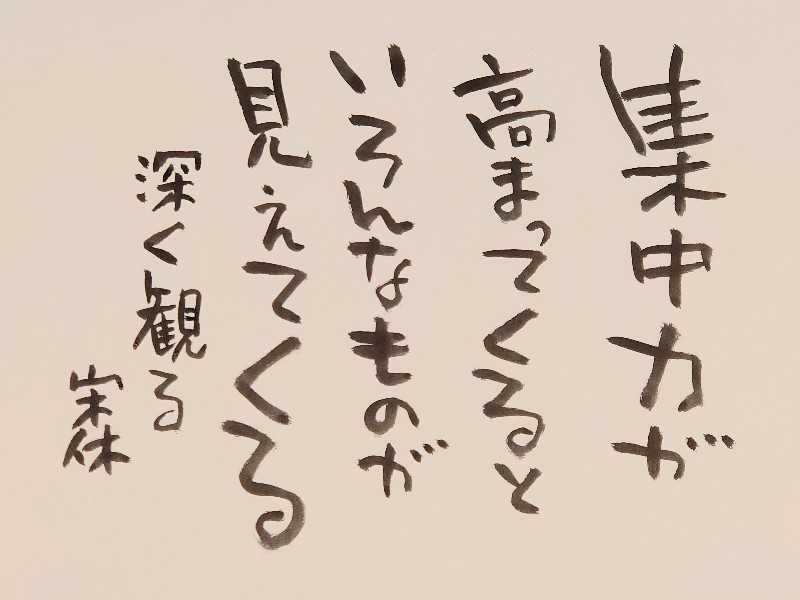 集中力が
高まってくると
いろんなものが
見えてくる
深く観る